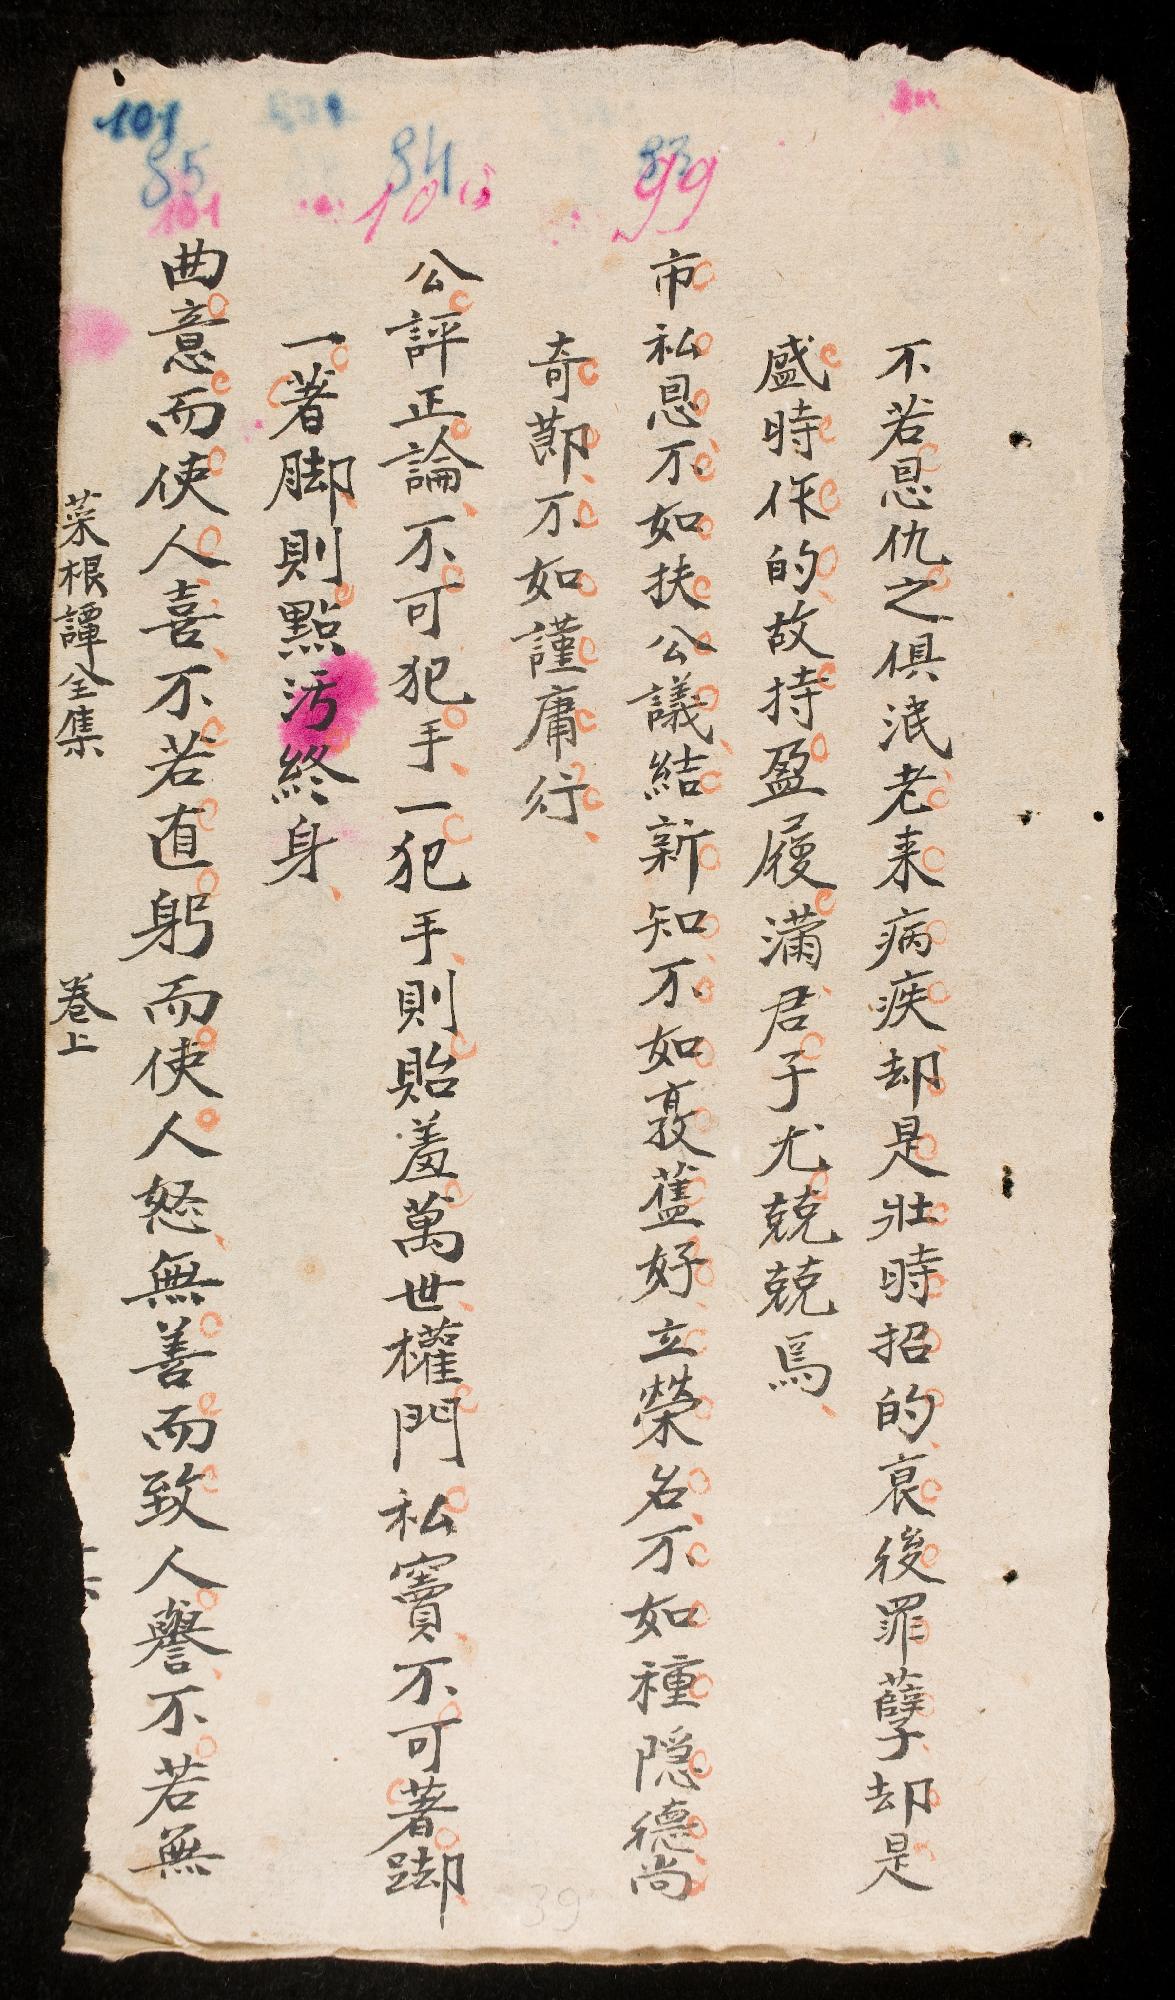 不若恩仇之俱泯老来病疾却是壯時招的衰後罪孽却是
盛時作的故持盈履滿君子尤兢兢焉
99
市私恩不如扶公議結新知不如敦舊好立榮名不如種隠德尚
奇節不如謹庸行
84
公評正論不可犯手一犯手則貽羞萬世權門私竇不可著脚
一著脚則點污終身
101
85
101
曲意而使人喜不若直躬而使人怒無善而致人譽不若無
菜根譚全集
卷上
39